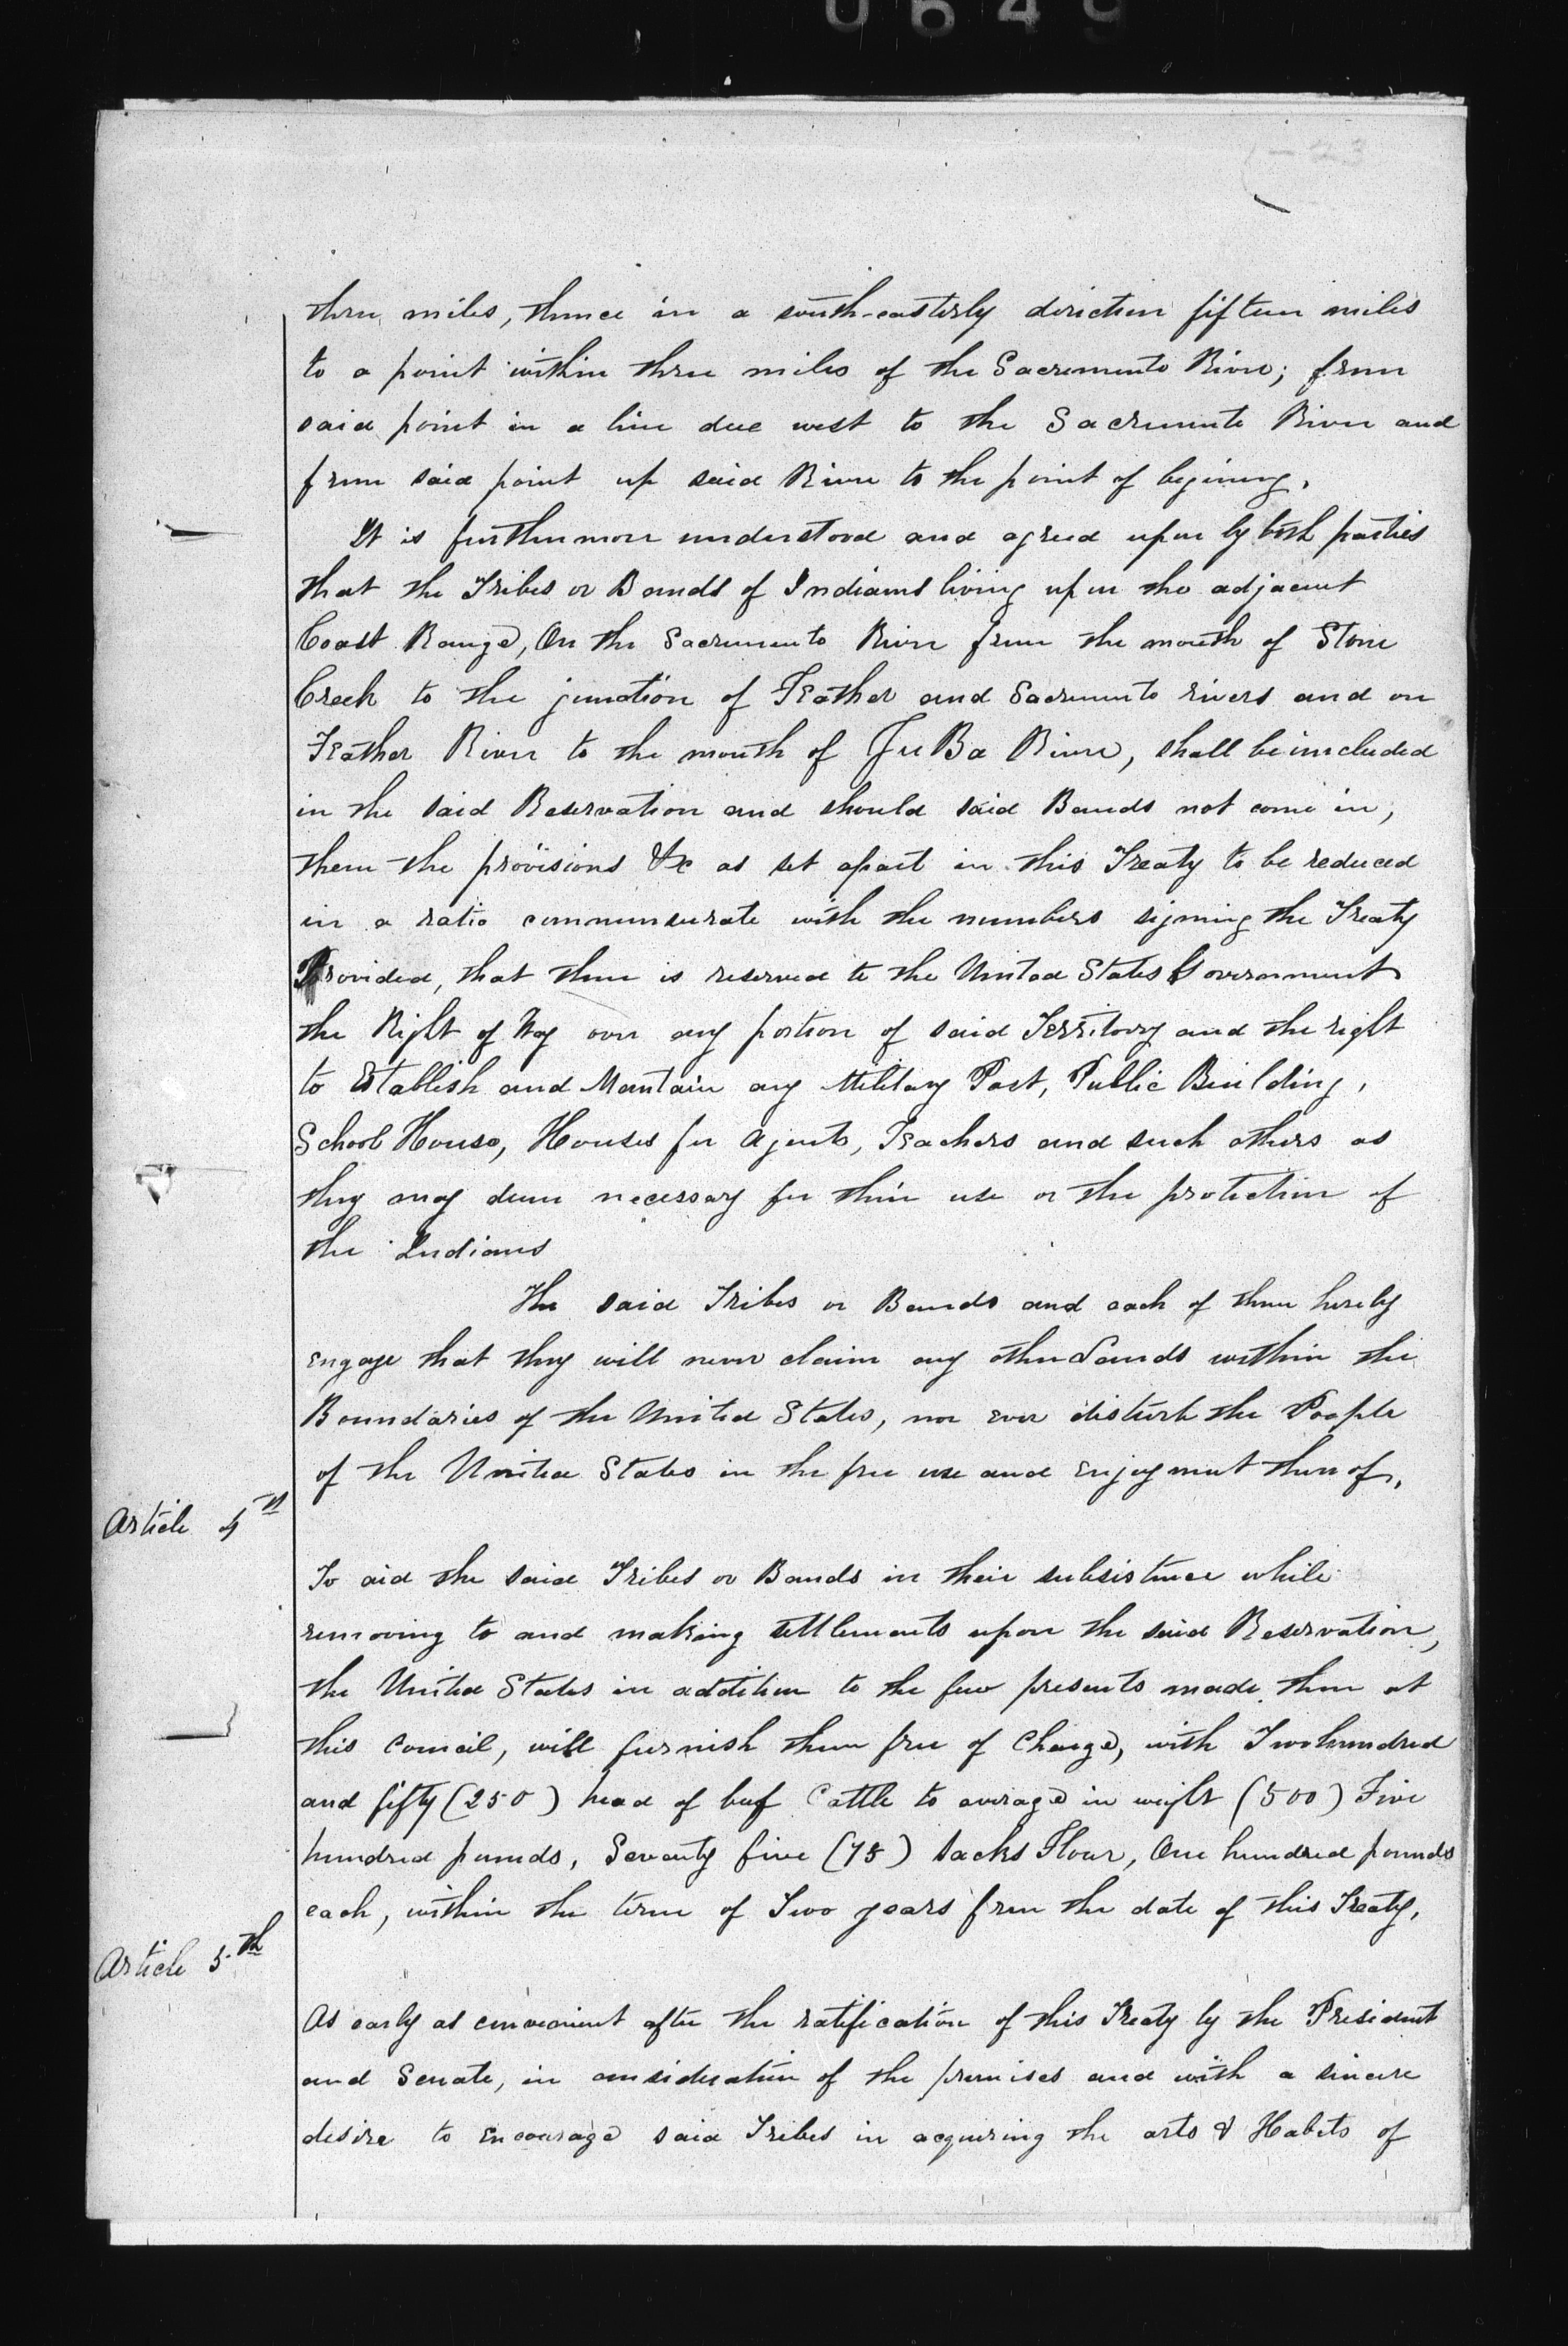 0649
three miles, thence in a south-easterly direction fifteen miles
to a point within three miles of the Sacremento River; from
said point in a line due west to the Sacremento River and
from said point up said River to the point of begining.
It is furthermore understood and agreed upon by both parties
that the Tribes or Bands of Indians living upon the adjacent
Coast Range, On the Sacremento River from the mouth of Stone
Creek to the junction of Feather and Sacremento rivers and on
Feather River to the mouth of JuBa River, shall be included
in the said Reservation and should said Bands not come in,
then the provisions &c as set apart in this Treaty to be reduced
in a ratio commensurate with the numbers signing the Treaty
Provided, that there is reserved to the United States Government
the Right of Way over any portion of said Territory and the right
to Establish and Mantain any Military Post, Public Building,
School House, Houses for Agents, Teachers and such others as
they may deem necessary for their use or the protection of
the Indians
The said Tribes or Bands and each of them hereby
engage that they will never claim any other Lands within the
Boundaries of the United States, nor ever disturb the People
of the United States in the free use and enjoyment thereof.
Article 4th
To aid the said Tribes or Bands in their subsistence while
removing to and making settlements upon the said Reservation,
the United States in addition to the few presents made them at
this Council, will furnish them free of Charge, with Two hundred
and fifty (250) head of beef Cattle to average in weight (500) Five
hundred pounds, Seventy five (75) sacks Flour, One hundred pounds
each, within the term of Two years from the date of this Treaty,
Article 5th
As early as convenient after the ratification of this Treaty by the President
and Senate, in consideration of the premises and with a sincere
desire to Encourage said Tribes in acquiring the arts & Habits of